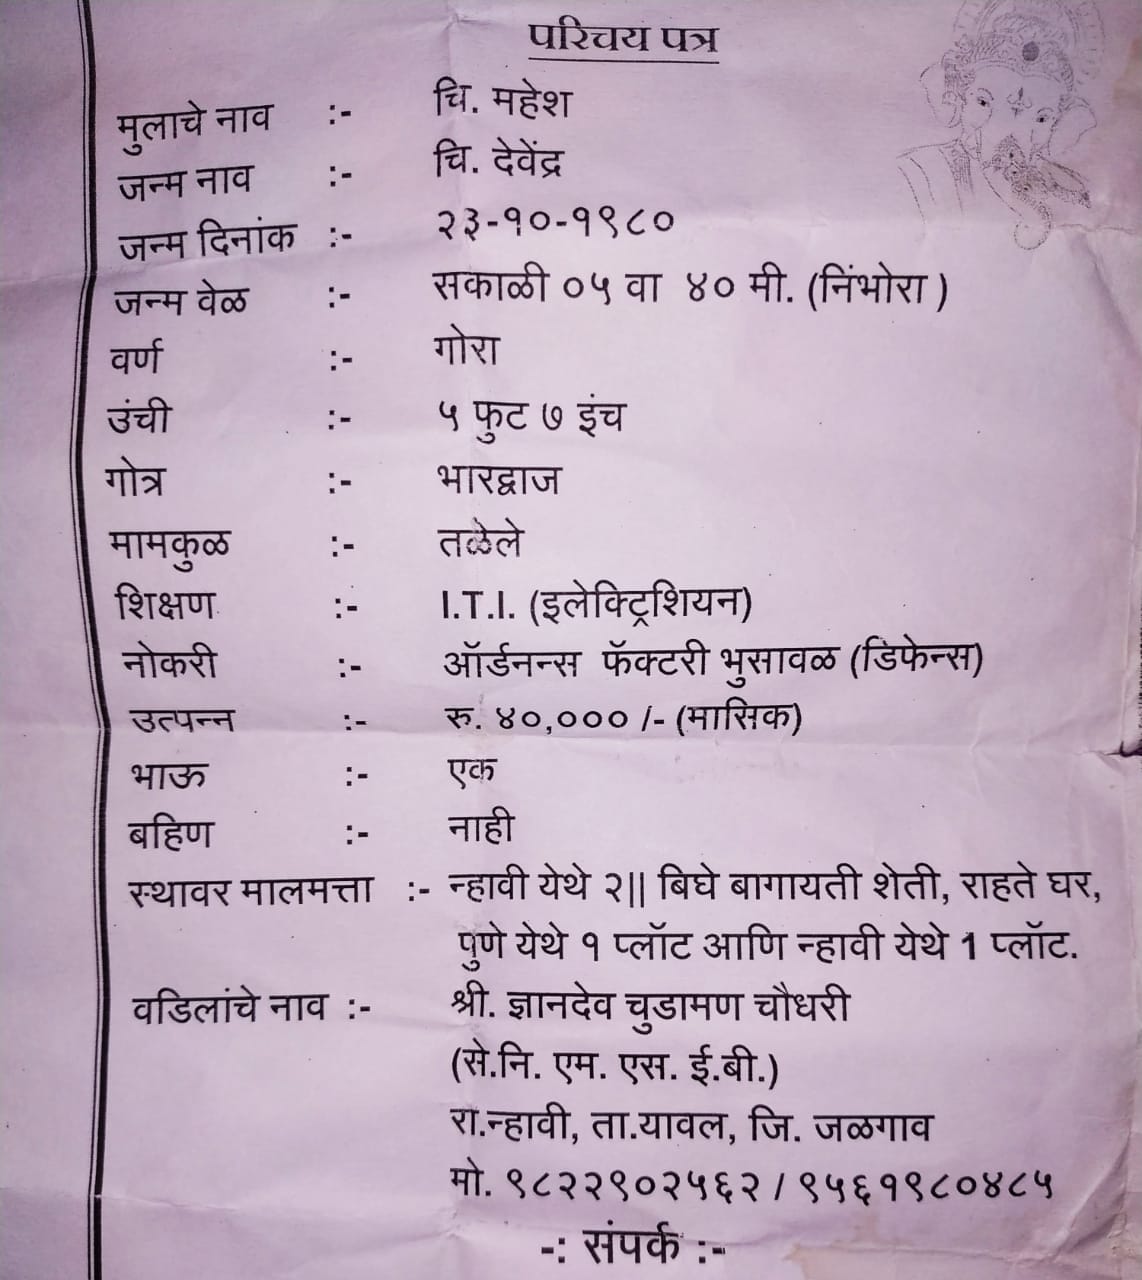 परिचय पत्र
मुलाचे नाव :- चि. महेश
जन्म नाव :- चि. देवेंद्र
जन्म दिनांक :- २३-१०-१९८०
जन्म वेळ :- सकाळी ०५ वा ४० मी. (निंभोरा )
वर्ण :- गोरा
उंची :- ५ फुट ७ इंच
गोत्र :- भारद्वाज
मामकुळ :- तळेले
शिक्षण :- I.T.I. (इलेक्ट्रिशियन)
नोकरी :- ऑर्डनन्स फॅक्टरी भुसावळ (डिफेन्स)
उत्पन्न :- रु. ४०,००० /- (मासिक)
भाऊ :- एक
बहिण :- नाही
स्थावर मालमत्ता :- न्हावी येथे २|| बिघे बागायती शेती, राहते घर,
पुणे येथे १ प्लॉट आणि न्हावी येथे 1 प्लॉट.
वडिलांचे नाव :- श्री. ज्ञानदेव चुडामण चौधरी
(से.नि. एम. एस. ई.बी.)
रा.न्हावी, ता.यावल, जि. जळगाव
मो. ९८२२९०२५६२ / ९५६१९८०४८५
-: संपर्क :-